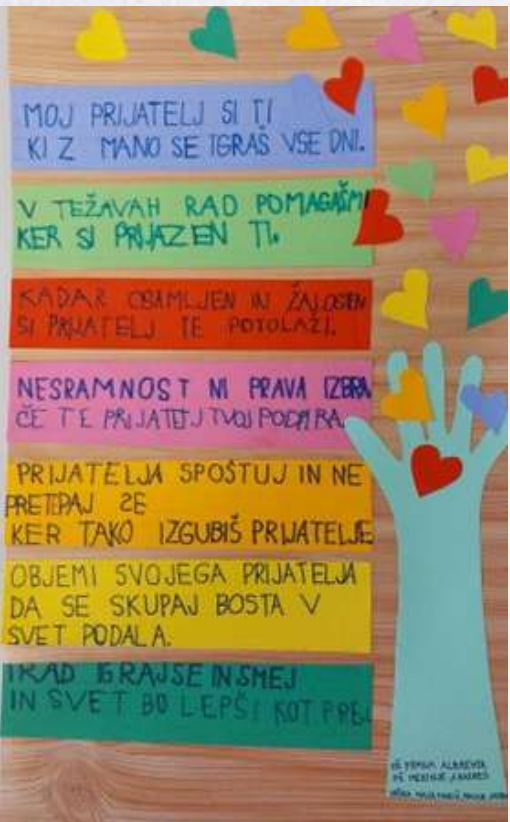 MOJ PRIJATELJ SI TI
KI Z MANO SE IGRAŠ VSE DNI.
V TEŽAVAH RAD POMAGAŠ MI
KER SI PRIJAZEN TI.
KADAR OSAMLJEN IN ŽALOSTEN
SI PRIJATELJ TE POTOLAŽI.
NESRAMNOST NI PRAVA IZBIRA
ČE TE PRIJATELJ TVOJ PODPIRA.
PRIJATELJA SPOŠTUJ IN NE
PRETEPAJ SE
KER TAKO IZGUBIŠ PRIJATELJE
OBJEMI SVOJEGA PRIJATELJA
DA SE SKUPAJ BOSTA V
SVET PODALA.
RAD IGRAJ SE IN SMEJ
IN SVET BO LEPŠI KOT PREJ